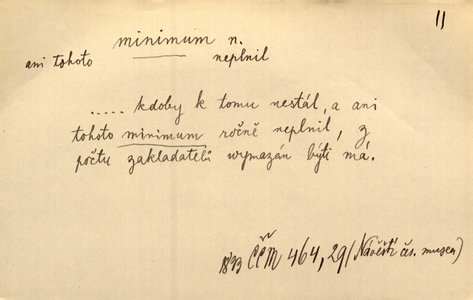 11
minimum n.
ani tohoto neplnil
..... kdoby k tomu nestál, a ani
tohoto minimum ročně neplnil, z
počtu zakladatelů vymazán býti má.
ČČM 464, 29 (Návěští čes. musea)